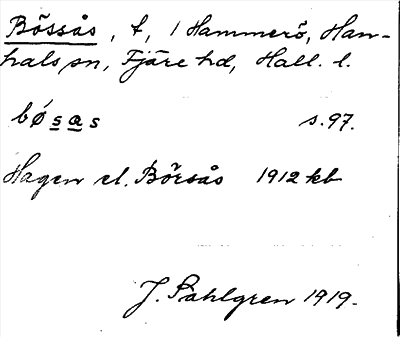 Bössås, t, 1 Hammerö, Han-
hals sn, Fjäre hd, Hall. l.
bǿsas s. 97.
Hagen el. Börsås 1912 kb
J. Sahlgren 1919.